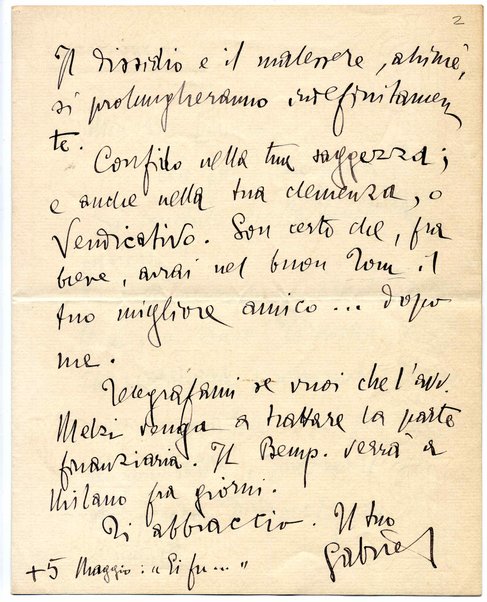 2
Il dissidio e il malessere, ahimè,
si prolungheranno indefinitamen
te.
Confido nella tua saggezza;
e anche nella tua clemenza, o
Vendicativo. Son certo che, fra
breve, avrai nel buon Tom il
tuo migliore amico... dopo
me.
Telegrafami se vuoi che l'avv.
Melzi venga a trattare la parte
finanziaria. Il Bemp. verrà a
Milano fra giorni.
Ti abbraccio. Il tuo
Gabriel
+5 Maggio: "Ei fu..."